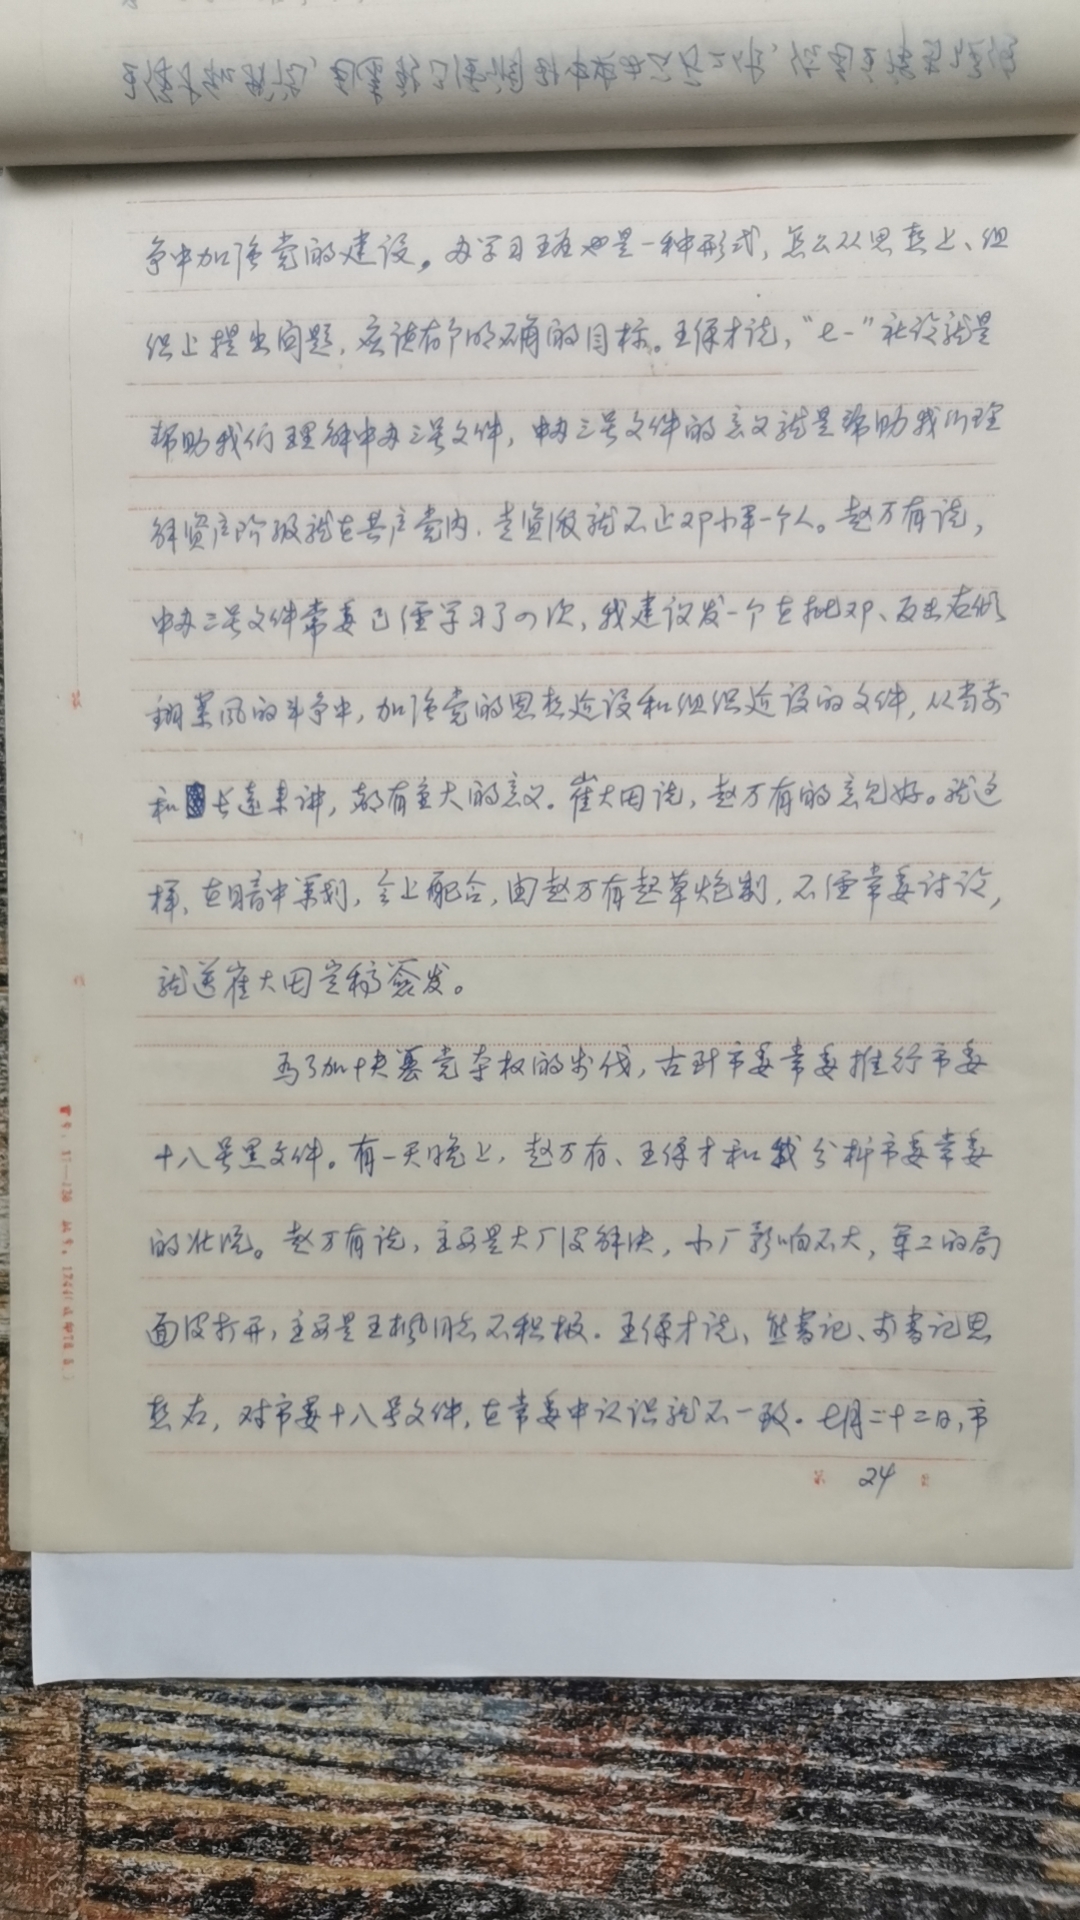 争中加强党的建设。办学习班也是一种形式，怎么从思想上、组
织上提出问题，应该有个明确的目标。王保才说，“七一”社论就是
帮助我们理解中办三号文件，中办三号文件的意义就是帮助我们理
解资产阶级就在共产党内，走资派就不止邓小平一个人。赵万有说，
中办三号文件常委已经学习了四次，我建议发一个在批邓、反击右倾
翻案风的斗争中，加强党的思想建设和组织建设的文件，从当前
和长远来讲，都有重大的意义。崔大田说，赵万有的意见好。就这
样，在暗中策划，会上配合，由赵万有起草炮制，不经常委讨论，
就送崔大田定稿签发。
为了加快篡党夺权的步伐，市委常委推行市委
十八号黑文件。有一天晚上，赵万有、王保才和我分析市委常委
的状况。赵万有说，主要是大厂没解决，小厂影响不大，军工的局
面没打开，主要是王枫同志不积极。王保才说，熊书记、书记思
想右，对市委十八号文件，在常委中认识就不一致。七月二十二日，市
第 24 页